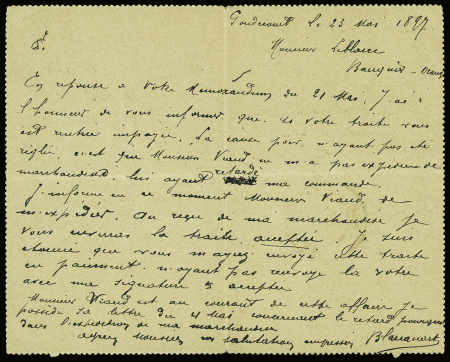 le 23 Mai 1897
Monsieur Leblanc
Banquier
En réponse à votre Memorandum du 21 Mai. J'ai
l'honneur de vous informer que si votre traite vous
est rentrée impayée. La cause pour n'ayant pas été
réglée c'est que Monsieur Viaud ne m'a pas expédié de
marchandises lui ayant retardé ma commande.
J'informe en ce moment Monsieur Viaud de
m'expédier. Au reçu de ma marchandise je
vous enverrai la traite acceptée. Je suis
étonné que vous m'ayez envoyé cette traite
en paiement n'ayant pas renvoyé la votre
avec ma signature acceptée
Monsieur Viaud est au courant de cette affaire je
possède sa lettre du 4 Mai concernant le retard
dans l'expédition de ma marchandise
agréez Monsieur vos salutations empressées